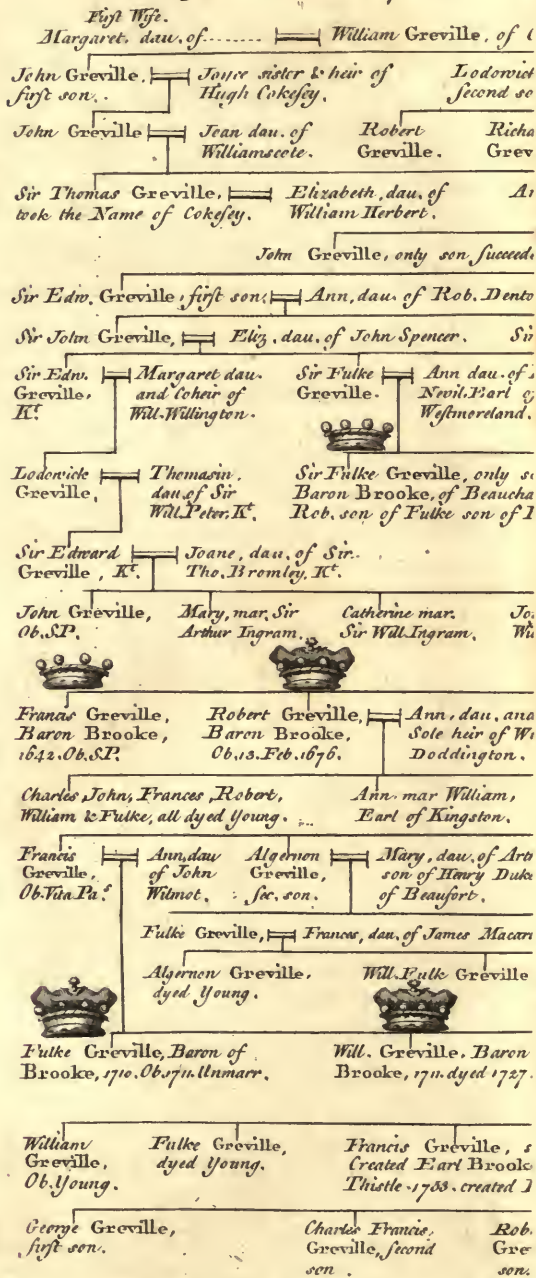 First Wife.
Margaret, dau. of ........ William Greville, of
John Greville, first son..
Joyce sister & heir of Hugh Cokesey.
Lodowick second so
John Greville
Jean dau. of Williamscote.
Robert Greville.
Richa Grev
Sir Thomas Greville, took the Name of Cokesey.
Elizabeth, dau. of William Herbert.
John Greville, only son succeed
Sir Edw. Greville, first son;
Ann, dau. of Rob. Dento
Sir John Greville,
Eliz. dau. of John Spencer.
Sir
Sir Edw. Greville, Kt.
Margaret dau. and Coheir of Will. Willington.
Sir Fulke Greville.
Ann dau. of Nevil. Earl of Westmoreland.
Lodowick Greville,
Thomasin, dau. of Sir Will. Peter, Kt.
Sir Fulke Greville, only s
Baron Brooke, of Beaucha
Rob. son of Fulke son of
Sir Edward Greville, Kt.
Joane, dau. of Sir. Tho. Bromley, Kt.
John Greville, Ob. S.P.
Mary, mar. Sir Arthur Ingram.
Catherine mar. Sir Will. Ingram.
Francis Greville, Baron Brooke, 1642. Ob. S.P.
Robert Greville, Baron Brooke, Ob. 13. Feb. 1676.
Ann, dau. and Sole heir of Doddington.
Charles, John, Frances, Robert, William & Fulke, all dyed Young.
Ann. mar William, Earl of Kingston.
Francis Greville, Ob. Vita Pa.s
Ann, dau of John Wilmot.
Algernon Greville, sec. son.
Mary, dau. of Art son of Henry Duke of Beaufort.
Fulke Greville,
Frances, dau. of James Macart
Algernon Greville, dyed Young.
Will. Fulk Greville
Fulke Greville, Baron of Brooke, 1710. Ob. 1711. Unmarr.
Will. Greville. Baron Brooke, 1711. dyed 1727.
William Greville, Ob. Young.
Fulke Greville, dyed Young.
Francis Greville, s
Created Earl Brook
Thistle. 1753. created
George Greville, first son.
Charles Francis, Greville, second son.
Rob. Gre son.